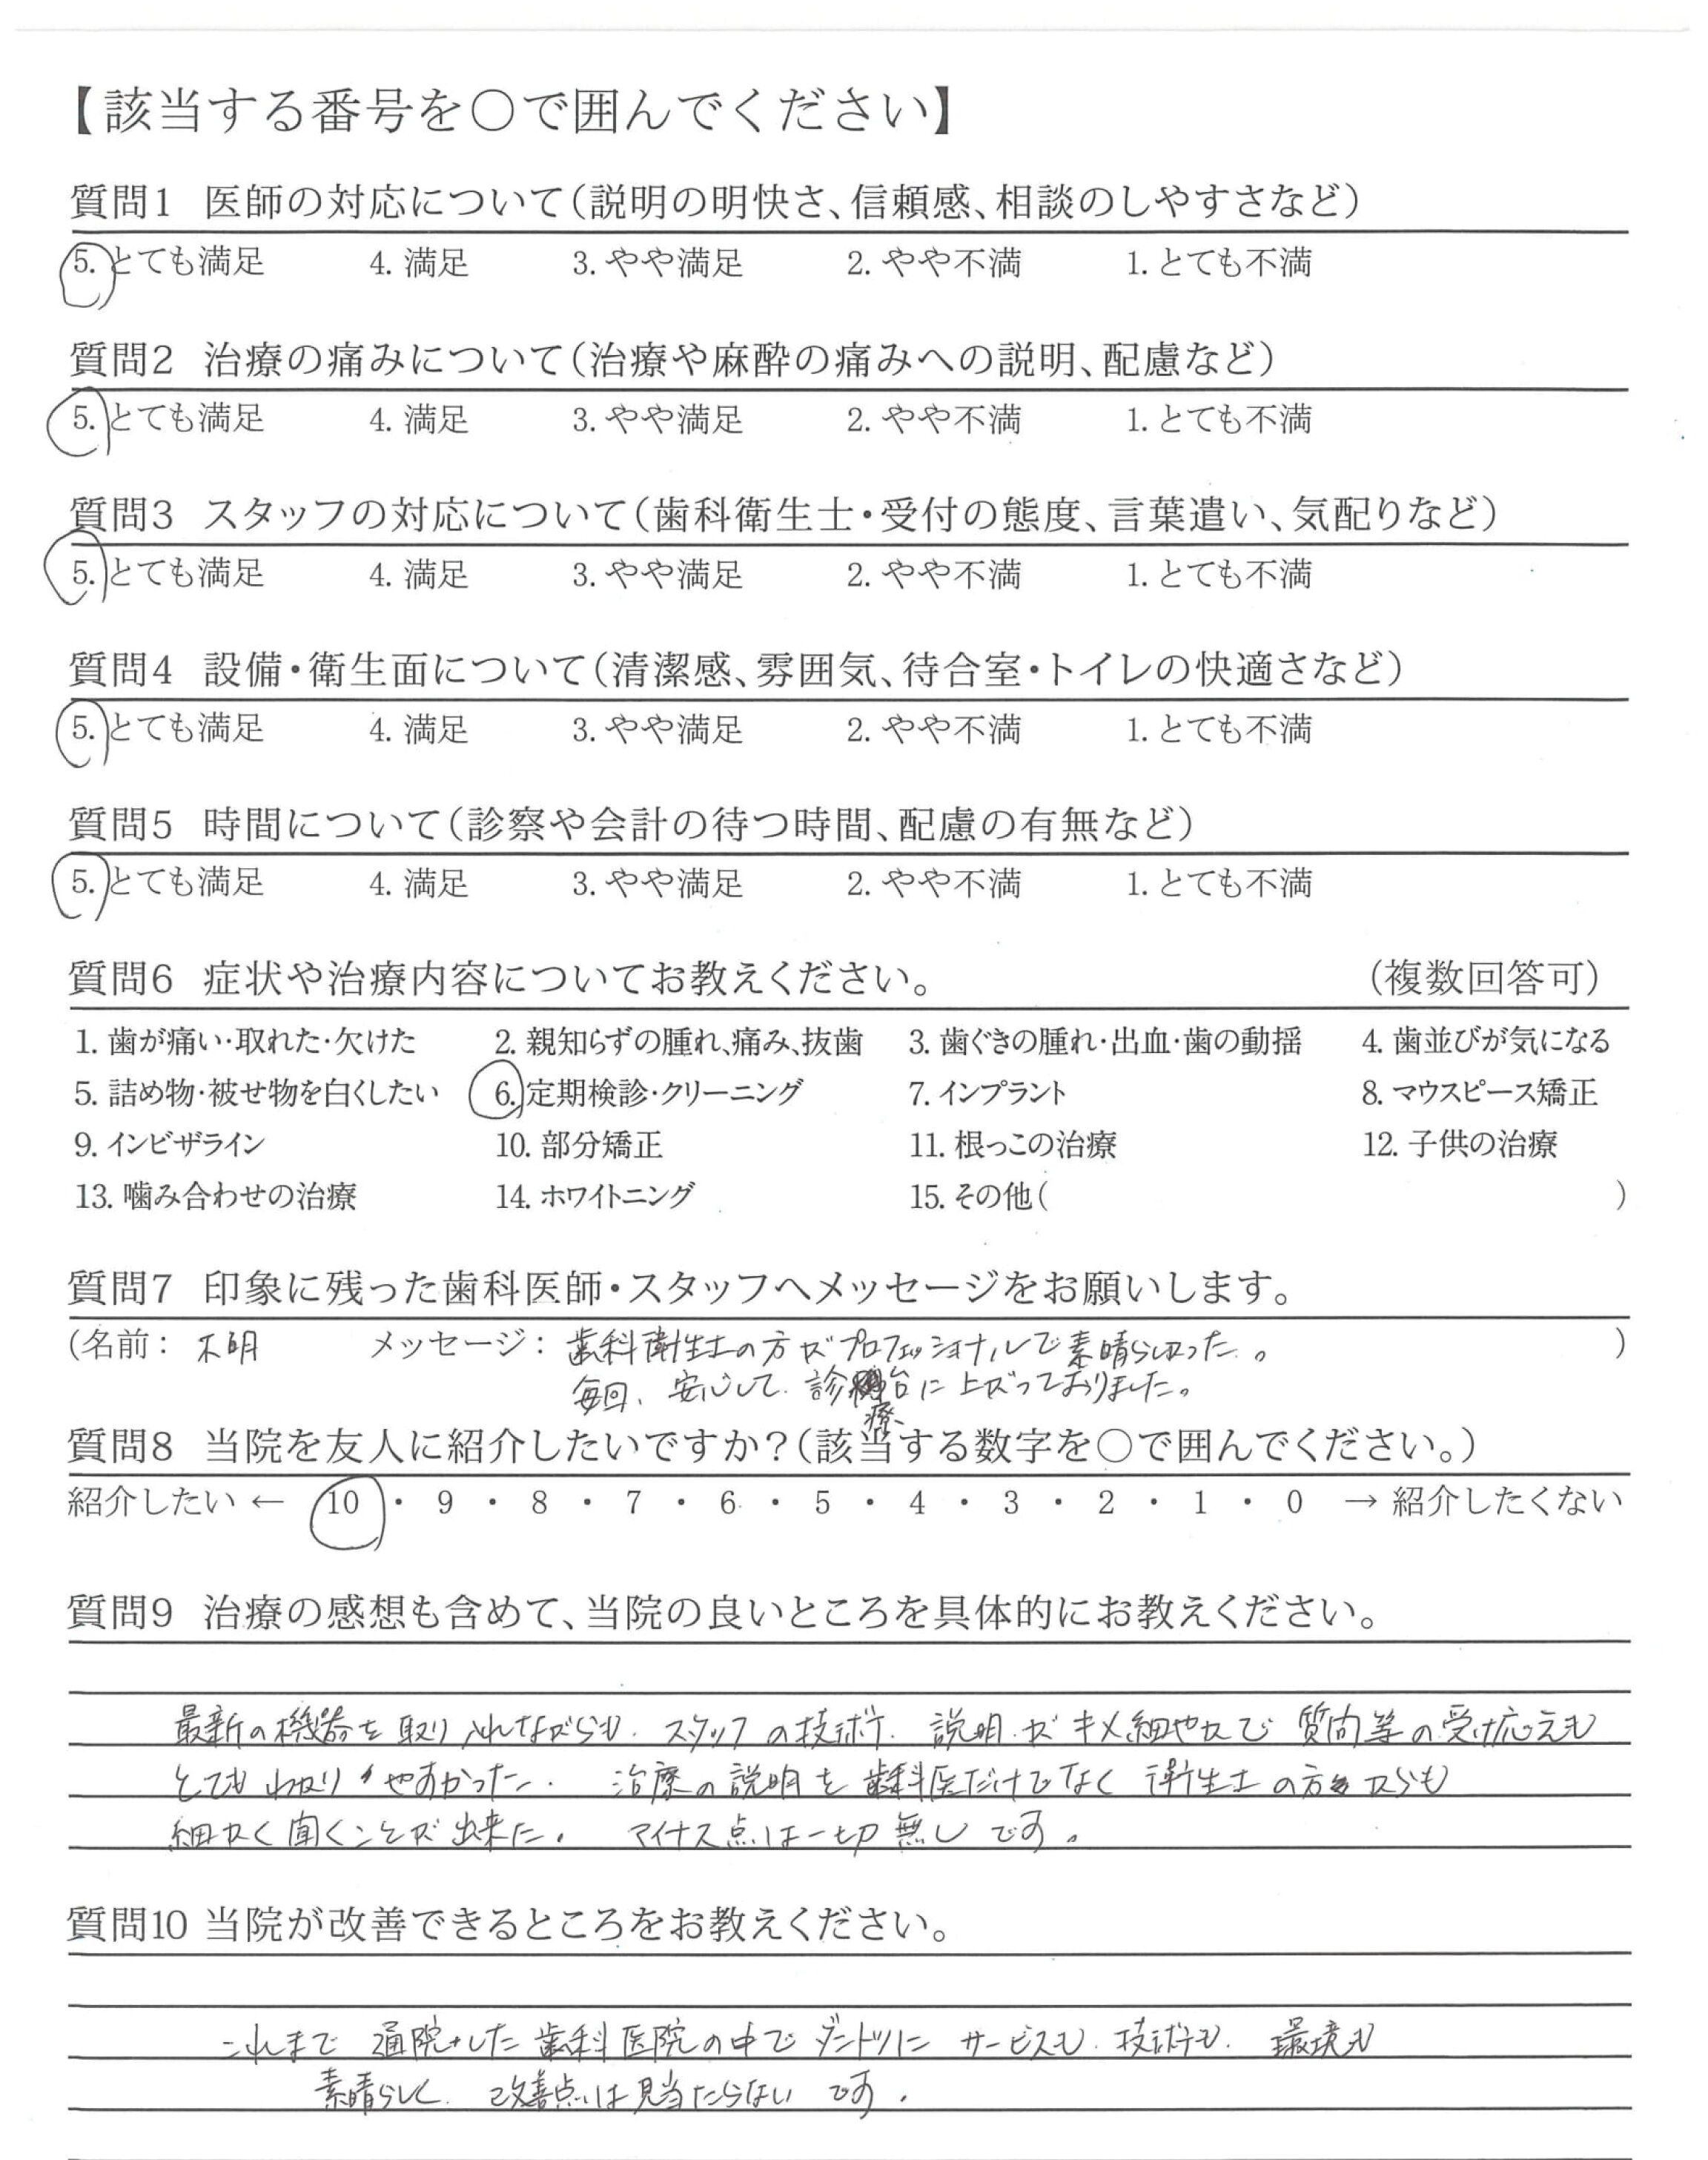 【該当する番号を〇で囲んでください】
質問1 医師の対応について（説明の明快さ、信頼感、相談のしやすさなど）
5. とても満足 4. 満足 3. やや満足 2. やや不満 1. とても不満
質問2 治療の痛みについて（治療や麻酔の痛みへの説明、配慮など）
5. とても満足 4. 満足 3. やや満足 2. やや不満 1. とても不満
質問3 スタッフの対応について（歯科衛生士・受付の態度、言葉遣い、気配りなど）
5. とても満足 4. 満足 3. やや満足 2. やや不満 1. とても不満
質問4 設備・衛生面について（清潔感、雰囲気、待合室・トイレの快適さなど）
5. とても満足 4. 満足 3. やや満足 2. やや不満 1. とても不満
質問5 時間について（診察や会計の待つ時間、配慮の有無など）
5. とても満足 4. 満足 3. やや満足 2. やや不満 1. とても不満
質問6 症状や治療内容についてお教えください。 （複数回答可）
1. 歯が痛い・取れた・欠けた 2. 親知らずの腫れ、痛み、抜歯 3. 歯ぐきの腫れ・出血・歯の動揺 4. 歯並びが気になる
5. 詰め物・被せ物を白くしたい 6. 定期検診・クリーニング 7. インプラント 8. マウスピース矯正
9. インビザライン 10. 部分矯正 11. 根っこの治療 12. 子供の治療
13. 噛み合わせの治療 14. ホワイトニング 15. その他（ ）
質問7 印象に残った歯科医師・スタッフへメッセージをお願いします。
（名前： 不明 メッセージ： 歯科衛生士の方がプロフェッショナルで素晴らしかった。 ）
毎回、安心して診療台に上がっておりました。
質問8 当院を友人に紹介したいですか？（該当する数字を〇で囲んでください。）
紹介したい ← 10 ・ 9 ・ 8 ・ 7 ・ 6 ・ 5 ・ 4 ・ 3 ・ 2 ・ 1 ・ 0 → 紹介したくない
質問9 治療の感想も含めて、当院の良いところを具体的にお教えください。
最新の機器を取り入れながらも、スタッフの技術、説明がキメ細やかで質問等の受け応えも
とてもわかりやすかった。 治療の説明を歯科医だけでなく衛生士の方からも
細かく聞くことが出来た。 マイナス点は一切無しです。
質問10 当院が改善できるところをお教えください。
これまで通院した歯科医院の中でダントツにサービスも、技術も、環境も
素晴らしく、改善点は見当たらないです。